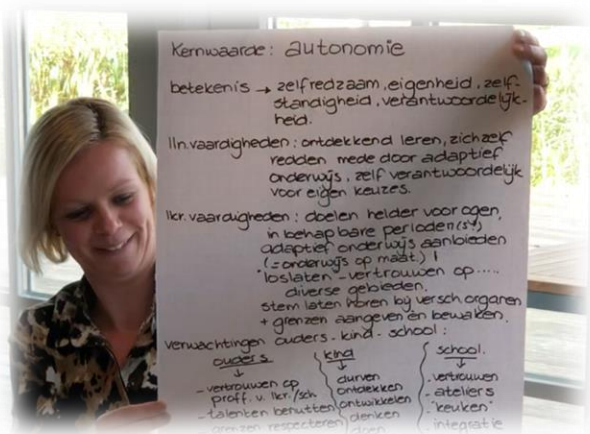 Kernwaarde: autonomie
betekenis → zelfredzaam, eigenheid, zelf-
standigheid, verantwoordelijk-
heid.
lln.vaardigheden: ontdekkend leren, zichzelf
redden mede door adaptief
onderwijs, zelf verantwoordelijk
voor eigen keuzes.
lkr.vaardigheden: doelen helder voor ogen,
in behapbare perioden
adaptief onderwijs aanbieden
(= onderwijs op maat.) !
loslaten - vertrouwen op .....
diverse gebieden.
stem laten horen bij versch organen
+ grenzen aangeven en bewaken.
verwachtingen ouders - kind - school:
ouders
- vertrouwen op
proff. v. lkr./sch
- talenten benutten
- grenzen respecteren
kind
durven
ontdekken
ontwikkelen
denken
doen
school.
- vertrouwen
- ateliers
- "keuken"
- integratie